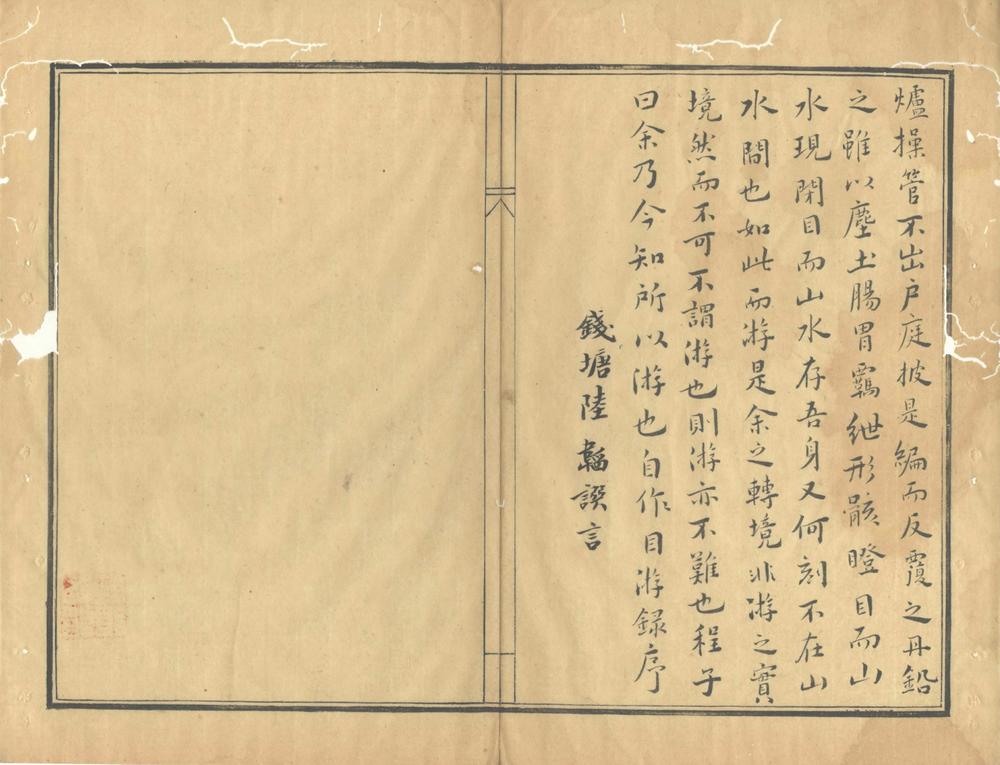 爐操管不出戶庭披是編而反覆之丹鉛
之雖以塵土腸胃羈紲形骸瞪目而山
水現閉目而山水存吾身又何刻不在山
水間也如此而游是余之轉境非游之實
境然而不可不謂游也則游亦不難也程子
曰余乃今知所以游也自作目游録序
錢塘陸韜譔言